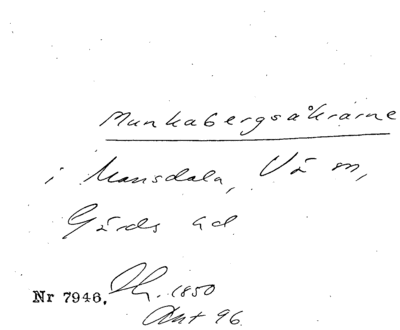 Munkabergsåkrarne
i Mansdala, Vä sn,
Gärds hd
Nr 7946. 1850
Ant 96